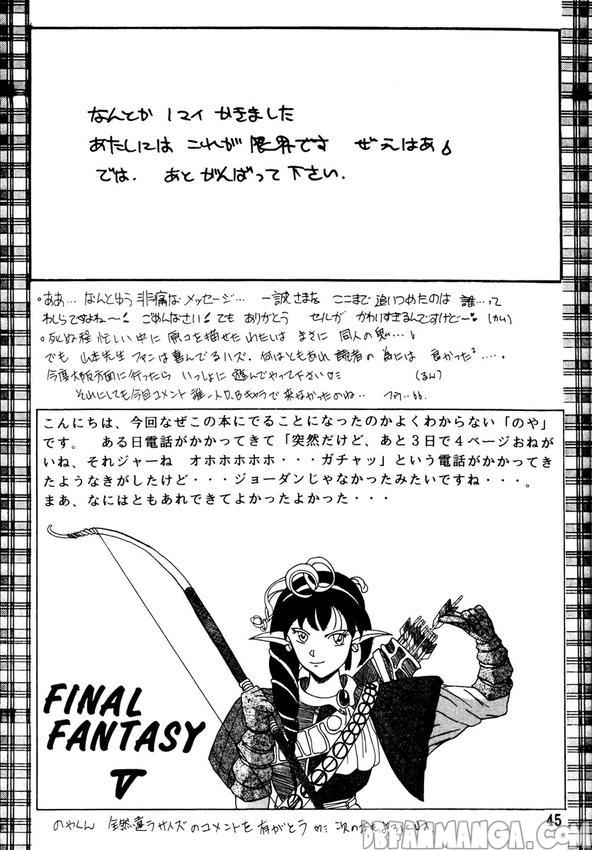 なんとか 1マイ かきました
あたしには これが 限界です ぜえはあ
では. あと がんばって 下さい.
。ああ… なんとゆう 非痛な メッセージ… 一誠さまを ここまで 追いつめたのは 誰…って
わしらですよね〜! ごめんなさい! でも ありがとう セルが かわいすぎるんですけど〜
。死ぬ程 忙しい中に 原コを描せた わたしは まさに 同人の鬼…
でも 山本先生 ファンは喜んでるハズ. 何はともあれ 読者の 為には 良かった
今度大阪方面に行ったら いっしょに 遊んでやって下さい (るん)
それにしても今回コメント 誰一人D.Bキャラで 来なかったのね…
こんにちは、今回なぜこの本にでることになったのかよくわからない「のや」
です。 ある日電話がかかってきて「突然だけど、あと3日で4ページおねが
いね、それジャーね オホホホホホ・・・ガチャッ」という電話がかかってき
たようなきがしたけど・・・ジョーダンじゃなかったみたいですね・・・。
まあ、なにはともあれできてよかったよかった・・・
FINAL
FANTASY
V
のやくん 全然違うサイズのコメントを 有がとう
45
DBFANMANGA.COM